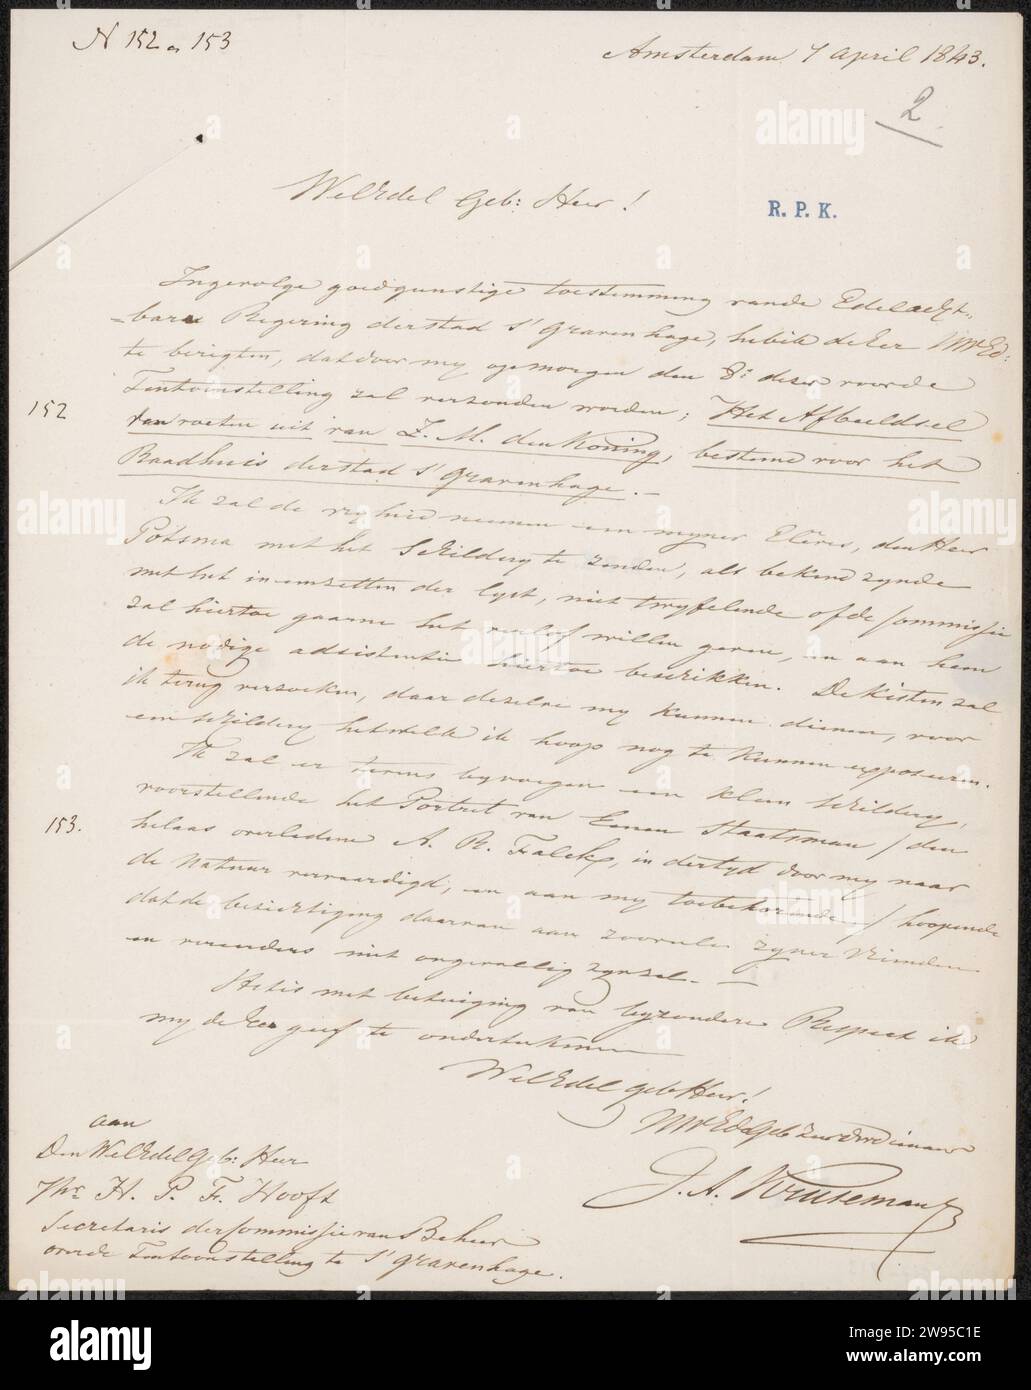 N 152 en 153
Amsterdam 7 April 1843.
2
WelEdel Geb: Heer!
R. P. K.
Ingevolge goedgunstige toestemming van de Edelacht-
=bare Regering der stad S'Gravenhage, heb ik de eer UWEd:
te berigten, dat door my op morgen den 8: dezer voor de
Tentoonstelling zal verzonden worden; Het Afbeeldsel
152
van voeten uit van Z. M. den Koning, bestemd voor het
Raadhuis der stad S'Gravenhage.—
Ik zal de vryheid neemen een myner Eleves, den Heer
Potsma met het Schildery te zenden, als bekend zynde
met het in een zetten der lyst, niet twyfelende of de Commissie
zal hiertoe gaarne het verlof willen geven, en aan hem
de nodige adsistentie hiertoe beschikken. De kisten zal
ik terug verzoeken, daar dezelve my kunnen dienen, voor
een Schildery hetwelk ik hoop nog te kunnen expposeren.
Ik zal er tevens byvoegen een klein Schildery,
voorstellende het Portret van Eenen Staatsman / den
153.
helaas overledene A. R. Falck, in dertyd door my naar
de Natuur vervaardigd, en aan my toebehorende / hoopende
dat de bezichtiging daarvan aan zoovele zyner Vrienden
en vereerders niet ongevallig zyn zal.—
Het is met betuiging van byzondere Respect ik
my de Eer geef te onderteekenen
WelEdel Geb Heer!
UWEdGeb Zeer dw dienaar
J. A. Kruseman
aan
Den WelEdelGeb: Heer
Jhr H. P. F. Hooft
Secretaris der Commissie van Beheer
over de Tentoonstelling te S'Gravenhage.
alamy
Image ID: 2W95C1E
www.alamy.com